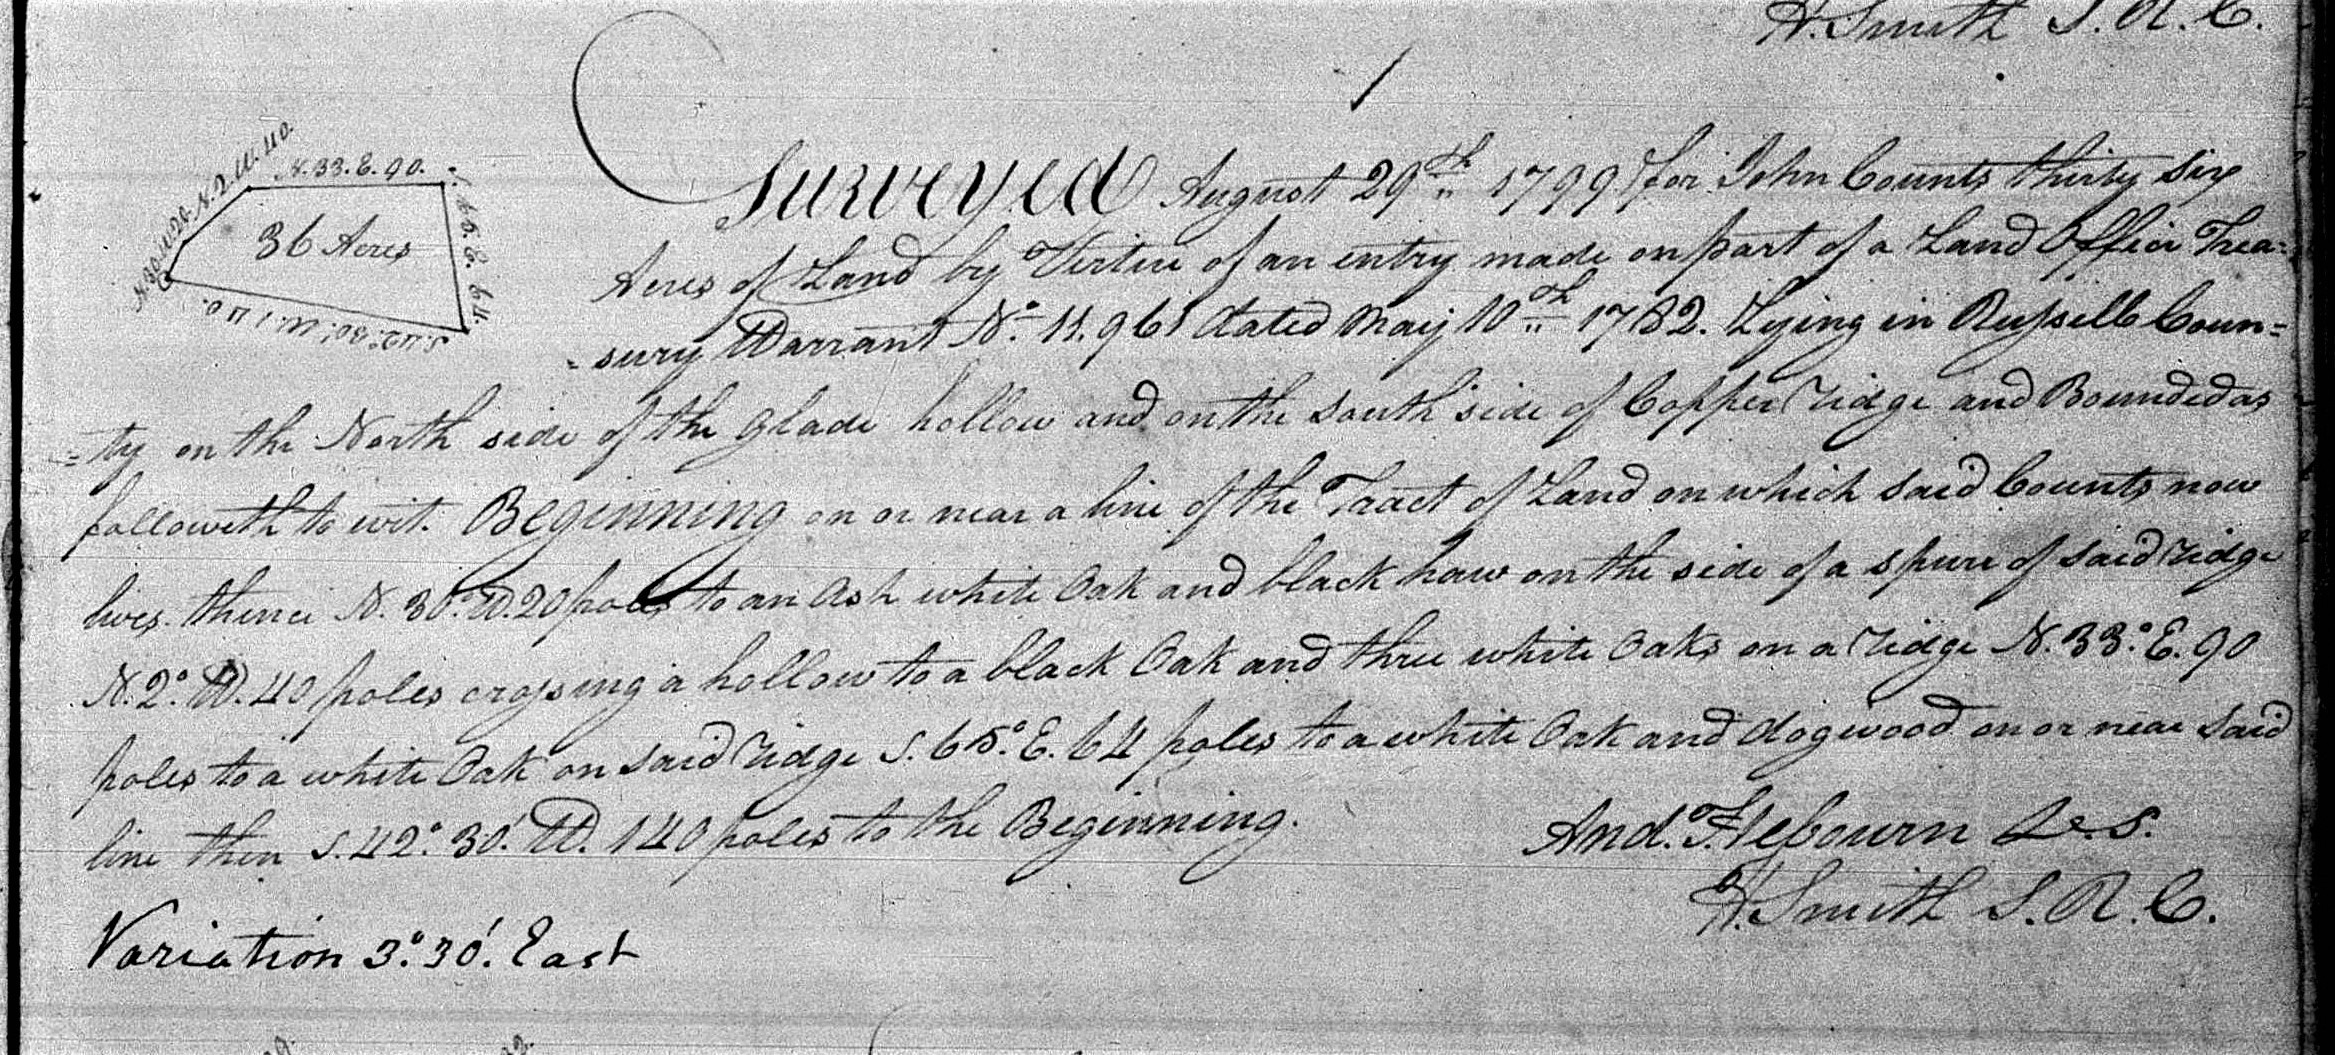 H. Smith S. R. C.
Surveyed August 29th 1799 for John Counts thirty six
Acres of Land by Virtue of an entry made on part of a Land Office Trea=
=sury Warrant No. 11.961 dated May 10th 1782. Lying in Russell Coun=
=ty on the North side of the glade hollow and on the South side of Copper ridge and Bounded as
followeth to wit. Beginning on or near a line of the Tract of Land on which said Counts now
lives. thence N. 30° W. 20 poles to an Ash white Oak and black haw on the side of a spure of said ridge
N. 2° W. 40 poles crossing a hollow to a black Oak and three white Oaks on a ridge N. 33° E. 90
poles to a white Oak on said ridge S. 65° E. 64 poles to a white Oak and dogwood on or near said
line then S. 42° 30' W. 140 poles to the Beginning.
And. Hebourn
H. Smith S. R. C.
Variation 3° 30' East
N. 30. W. 20. N. 2. W. 40.
N. 33. E. 90.
S. 65. E. 64.
S. 42° 30' W. 140.
36 Acres